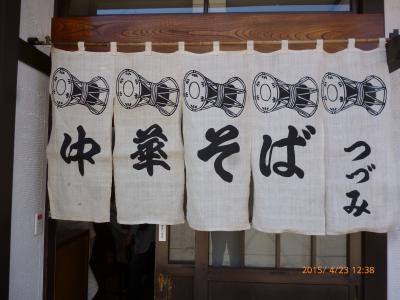 中華そば
つづみ
2015/ 4/23 12:38